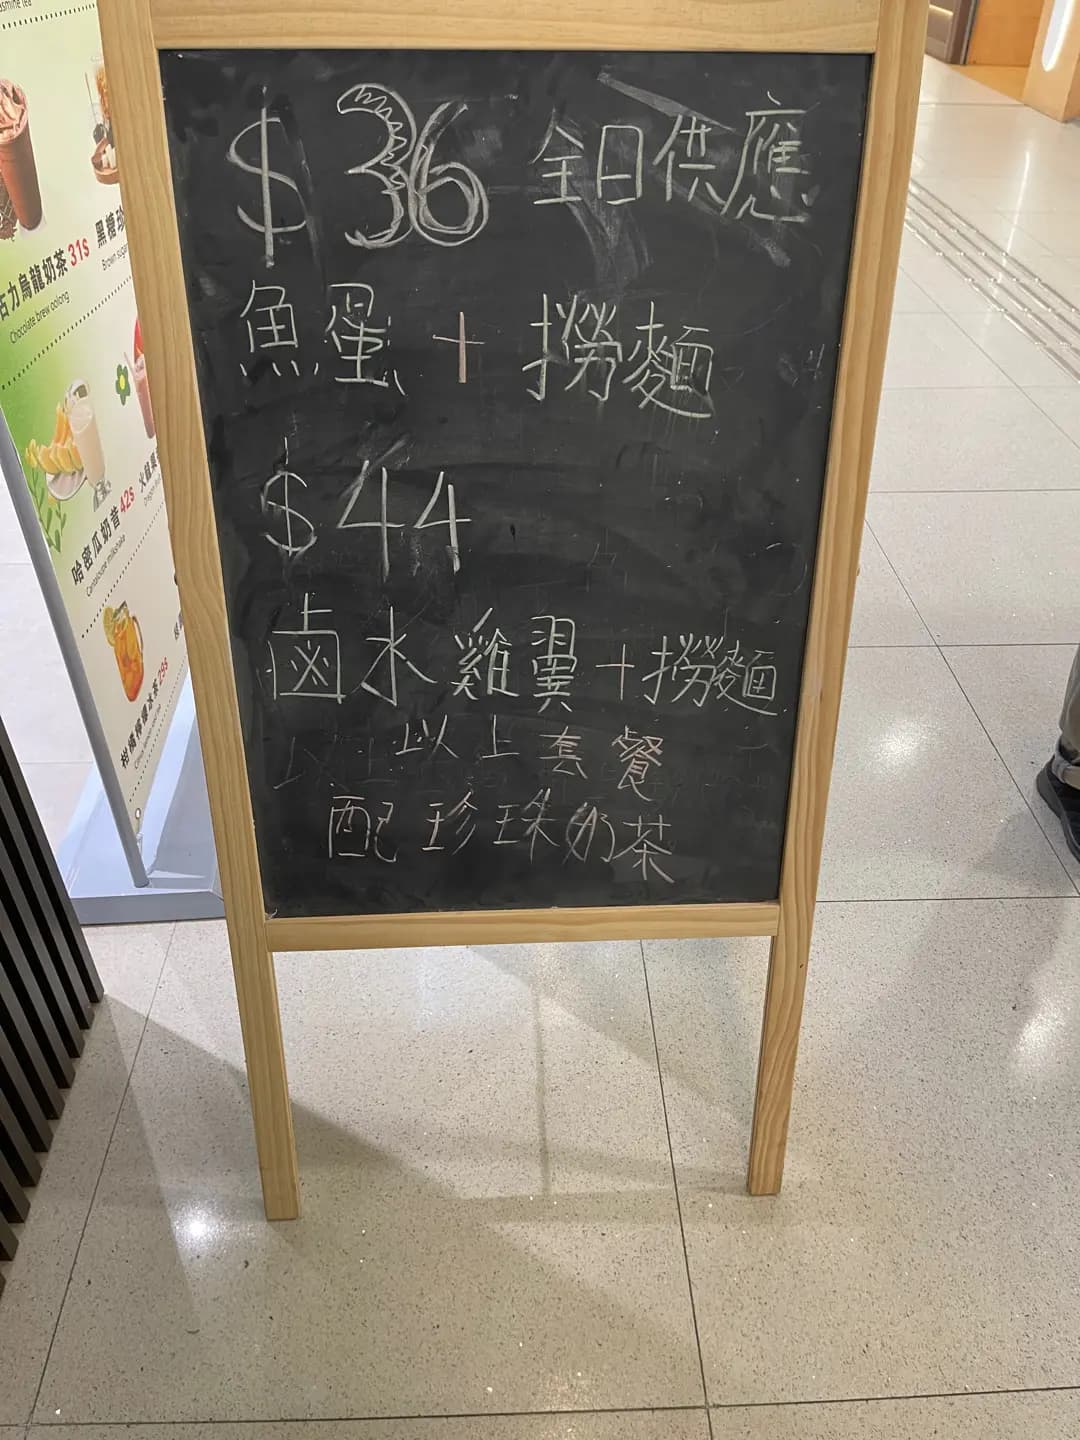 $36 全日供應
魚蛋 + 撈麵
$44
鹵水雞翼+撈麵
以上套餐
配珍珠奶茶
asmine tea
古力烏龍奶茶 31s
Chocolate brew oolong
黑糖珍
Brown sugar
哈密瓜奶昔 42s
Cantaloupe milkshake
火龍果
柑橘檸檬冰茶 29s